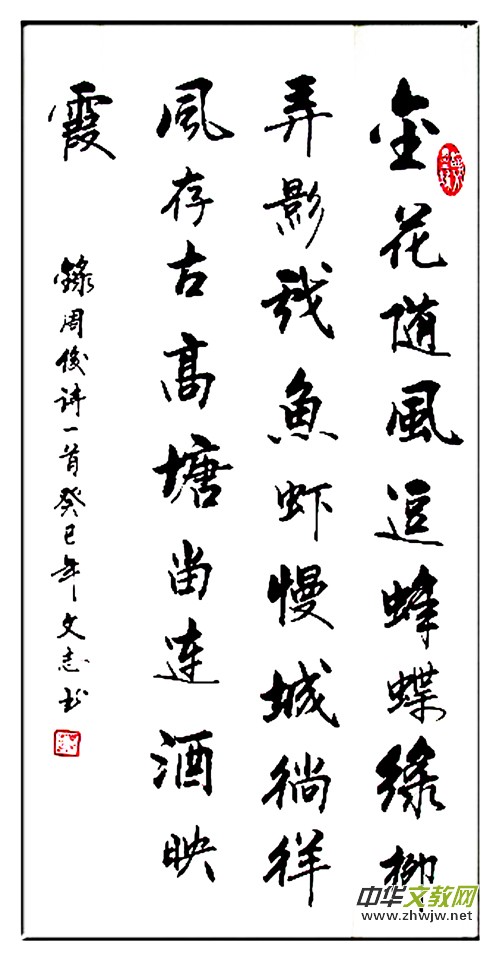 金花随風逗蜂蝶綠柳
弄影戏魚虾慢城徜徉
風存古高塘畄连酒映
霞
錄周俊詩一首癸巳年文志书
中华文教网
www.zhwjw.net